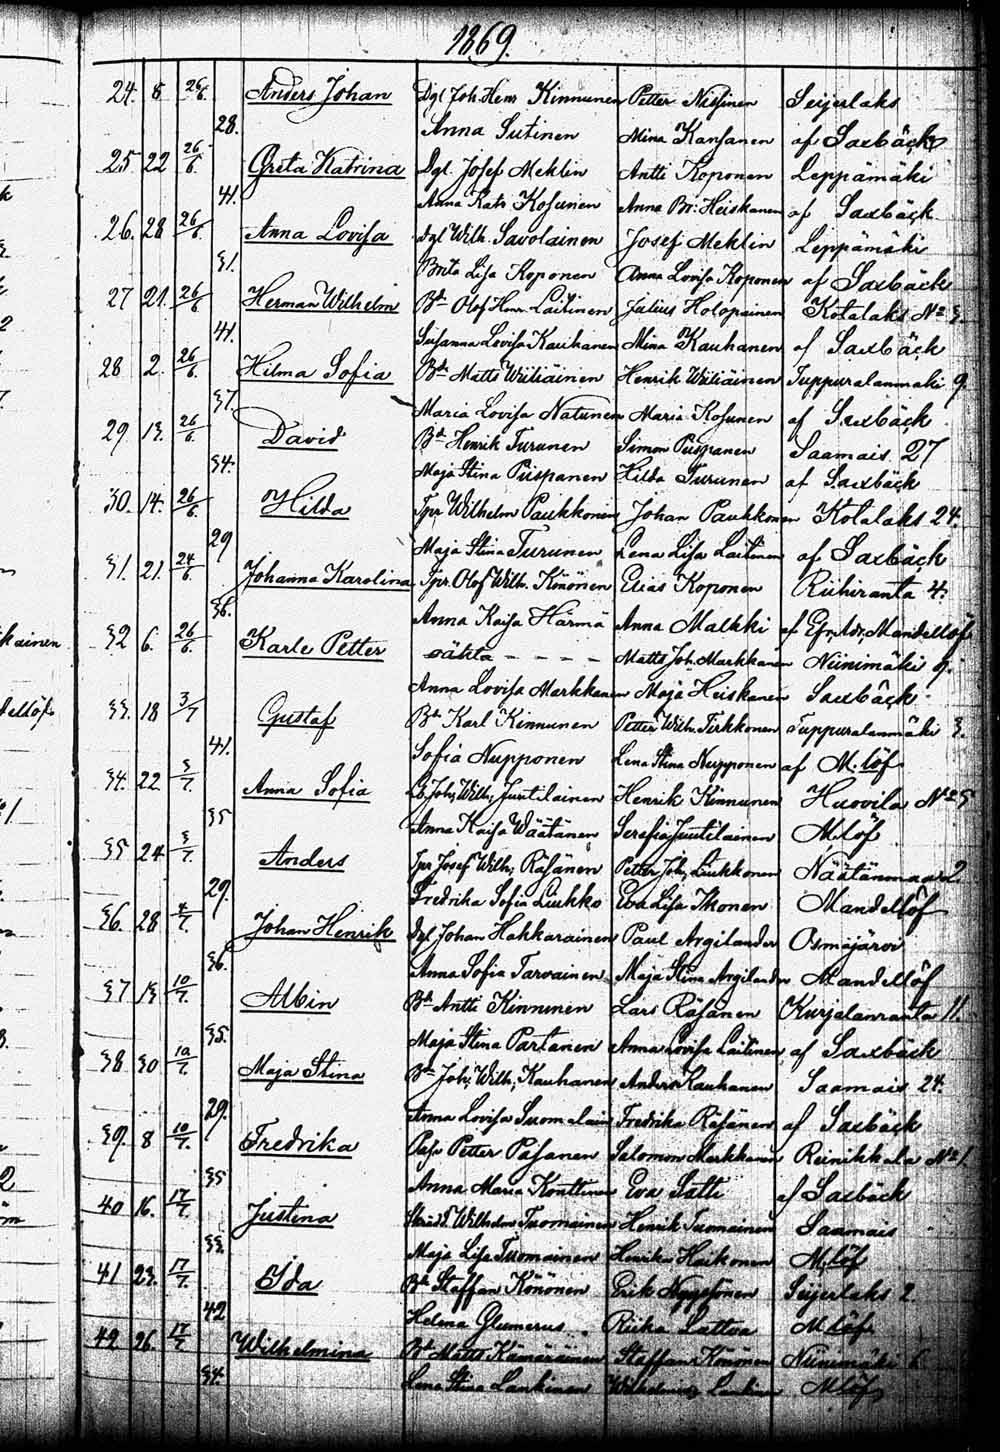 1869.
24. 8 26/6. Anders Johan Dgl Joh. Henr Kinnunen Petter Nissinen Seijerlaks
28. Anna Sutinen Mina Kansanen af Saxbäck
25. 22 26/6. Greta Katrina Dgl. Josef Meklin Antti Koponen Leppämäki
41. Anna Katr Kosunen Anna Br: Heiskanen af Saxbäck
26. 28 26/6. Anna Lovisa Dgl Wilh. Savolainen Josef Meklin Leppämäki
31. Brita Lisa Koponen Anna Lovisa Koponen af Saxbäck
27 21. 26/6 Herman Wilhelm Bd Olof Henr. Laitinen Julius Holopainen Kotalaks No 3.
41. Susanna Lovisa Kauhanen Mina Kauhanen af Saxbäck
28 2. 26/6. Hilma Sofia Bd Matts Wäliäinen Henrik Wäliäinen Tuppuralanmäki 9.
37. Maria Lovisa Natunen Maria Kosunen af Saxbäck
29 13. 26/6 David Bd Henrik Turunen Simon Puspanen Saamais 27
34. Maja Stina Puspanen Hilda Turunen af Saxbäck
30. 14. 26/6. Hilda Tpr Wilhelm Paukkonen Johan Paukkonen Kotalaks 24.
29 Maja Stina Turunen Lena Lisa Laitinen af Saxbäck
31. 21. 24/6. Johanna Karolina Tpr. Olof Wilh. Könönen Elias Koponen Riihiranta 4.
36. Anna Kaisa Härmä Anna Malkki af Mandellöf
32 6. 26/6. Karle Petter oäkta - - - - - Matts Joh. Markkanen Niinimäki 9.
Anna Lovisa Markkanen Maja Heiskanen Saxbäck
33. 18 3/7 Gustaf Bd Karl Kinnunen Petter Wilh. Tirkkonen Tuppuralanmäki 3.
41. Sofia Nupponen Lena Stina Nupponen af M.löf
34. 22 3/7. Anna Sofia Joh. Wilh. Juutilainen Henrik Kinnunen Huovila No 5
35 Anna Kaisa Wäätänen Serafia Juutilainen M.löf
35 24 3/7. Anders Tpr Josef Wilh; Räsänen Petter Joh; Liukkonen Näätänmaa 2
29. Fredrika Sofia Liukko Eva Lisa Ikonen Mandellöf
36. 28 4/7. Johan Henrik Dgl Johan Hakkarainen Paul Argilander Osmajärvi
36. Anna Sofia Tarvainen Maja Stina Argilander Mandellöf
37 13 10/7. Albin Bd Antti Kinnunen Lars Räsänen Kurjalanranta 11.
35. Maja Stina Partanen Anna Lovisa Laitinen af Saxbäck
38. 30 10/7. Maja Stina Bd Joh; Wilh; Kauhanen Anders Kauhanen Saamais 24.
29. Anna Lovisa Suomalain Fredrika Räsänen af Saxbäck
39. 8 10/7. Fredrika Petter Pasanen Salomon Markkanen Reinikkala No 1.
35 Anna Maria Konttinen Eva Latti af Saxbäck
40 16. 17/7. Justina Wilhelm Tuomainen Henrik Tuomainen Saamais
33. Maja Lisa Tuomainen Henrika Haikonen M.löf
41 23. 17/7. Ida Bd Staffan Könönen Erik Nyyssönen Seijerlaks 2
42 Helena Glumerus Riika Lattva M.löf
42 26. 17/7 Wilhelmina Bd Matts Kämäräinen Staffan Könönen Niinimäki 6
34. Lena Stina Lankinen Wilhelmina Lankinen M.löf